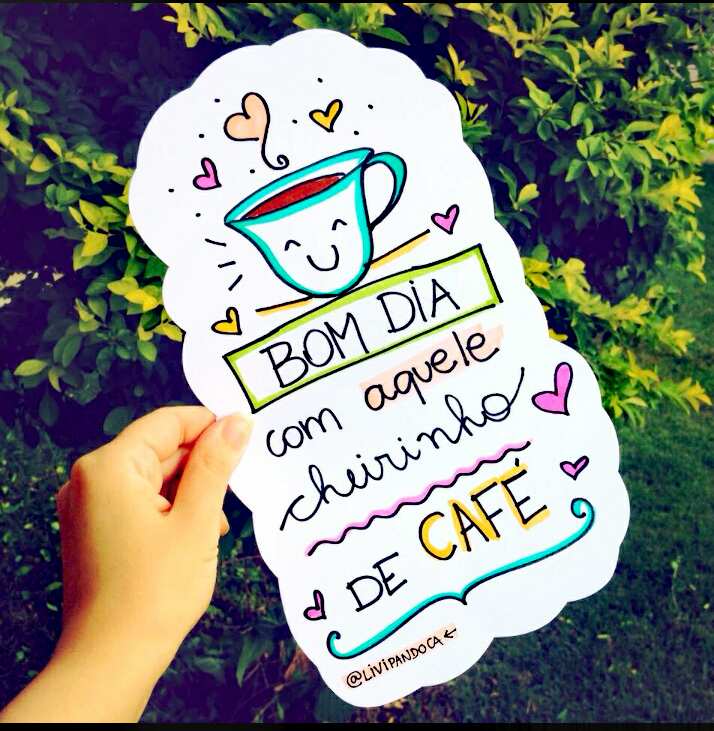 BOM DIA
com aquele
cheirinho
DE CAFÉ
@LIVIPANDOCA